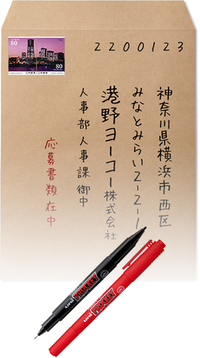 2200123
神奈川県横浜市西区
みなとみらい2-2-1
港野ヨーコー株式会社
人事部人事課御中
応募書類在中
80
80